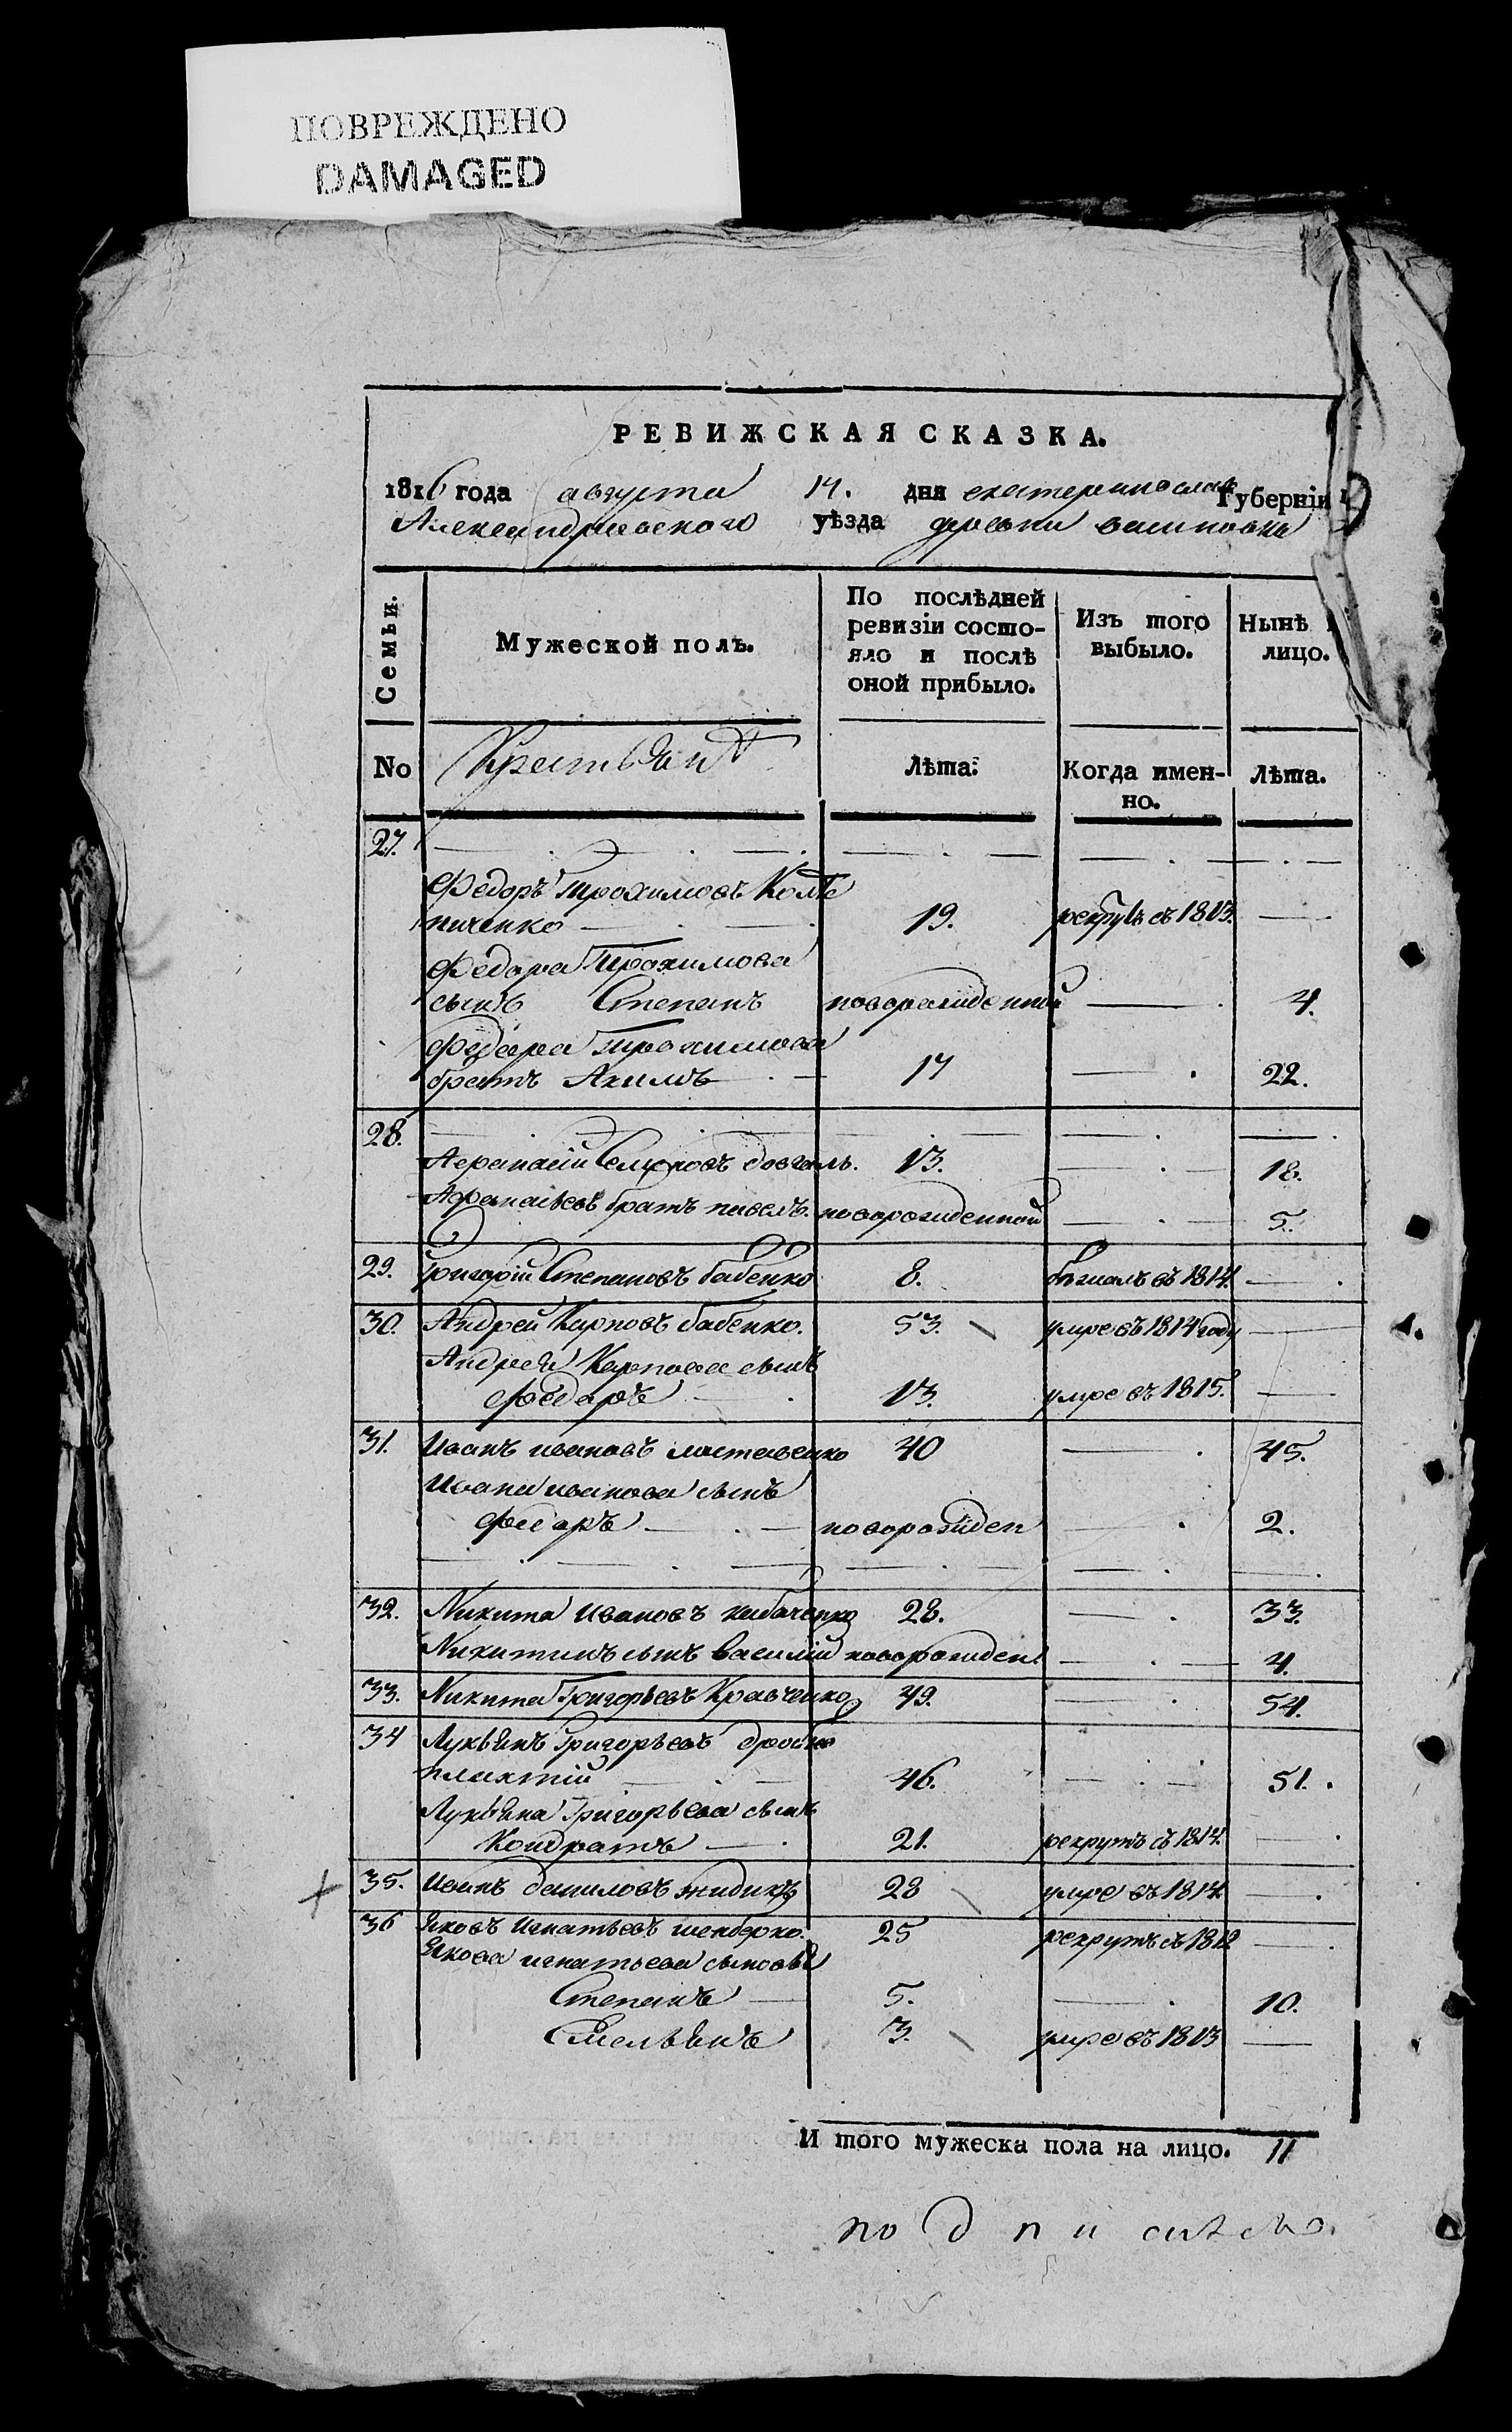 ПОВРЕЖДЕНО
DAMAGED
РЕВИЖСКАЯ СКАЗКА.
1816 года августа 14. дня екатеринослав Губерніи
Александровского уѣзда деревни
Семьи.
Мужеской полъ.
По послѣдней ревизіи состо-
яло и послѣ оной прибыло.
Изъ того выбыло.
Нынѣ лицо.
No Крестьянъ Лѣта: Когда имен-но. Лѣта.
27.
Федоръ Трохимовъ Коле
ниченко 19. рекрутъ съ 1813.
Федора Трохимова
сынъ Степанъ новорожденной 4.
Федора Трохимова
братъ Акимъ 17 22.
28.
Афанасій довгаль. 13. 18.
Афанасьевъ братъ павелъ. новорожденной 5.
29. Григорій Степановъ бабенко 8. въ 1814.
30. Андрей Карповъ бабенко. 53. умре въ 1814 году
Андрея Карпова сынъ
федоръ 13. умре въ 1815.
31. Иванъ ивановъ 40 45.
Ивана иванова сынъ
федоръ новорожден 2.
32. Никита Ивановъ 28. 33.
Никитинъ сынъ василій новорожден. 4.
33. Никита Григорьевъ Кравченко 49. 54.
34 Лукьянъ Григорьевъ
46. 51.
Лукьяна Григорьева сынъ
Кондратъ 21. рекрутъ съ 1814.
35. Иванъ даниловъ 28 умре въ 1814.
36 Яковъ Игнатьевъ 25 рекрутъ съ 1812
Якова игнатьева сыновья
Степанъ 5. 10.
Емельянъ 3. умре въ 1813
И того мужеска пола на лицо. 11